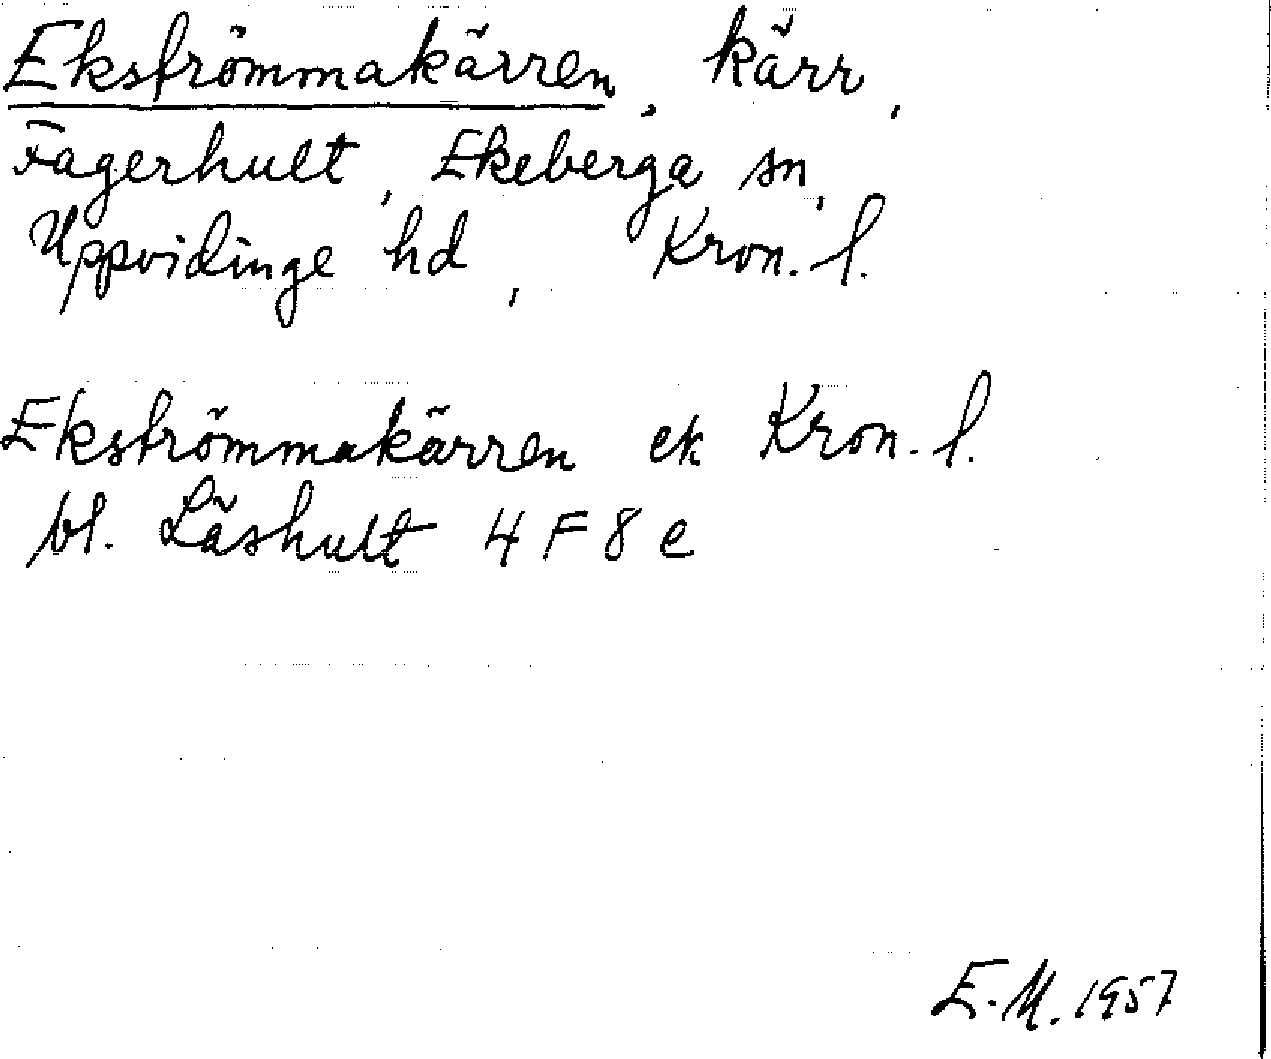 Ekströmmakärren, kärr,
Fagerhult, Ekeberga sn,
Uppvidinge hd, Kron. l.
Ekströmmakärren ek Kron. l.
bl. Låshult 4 F 8 e
E.M. 1957